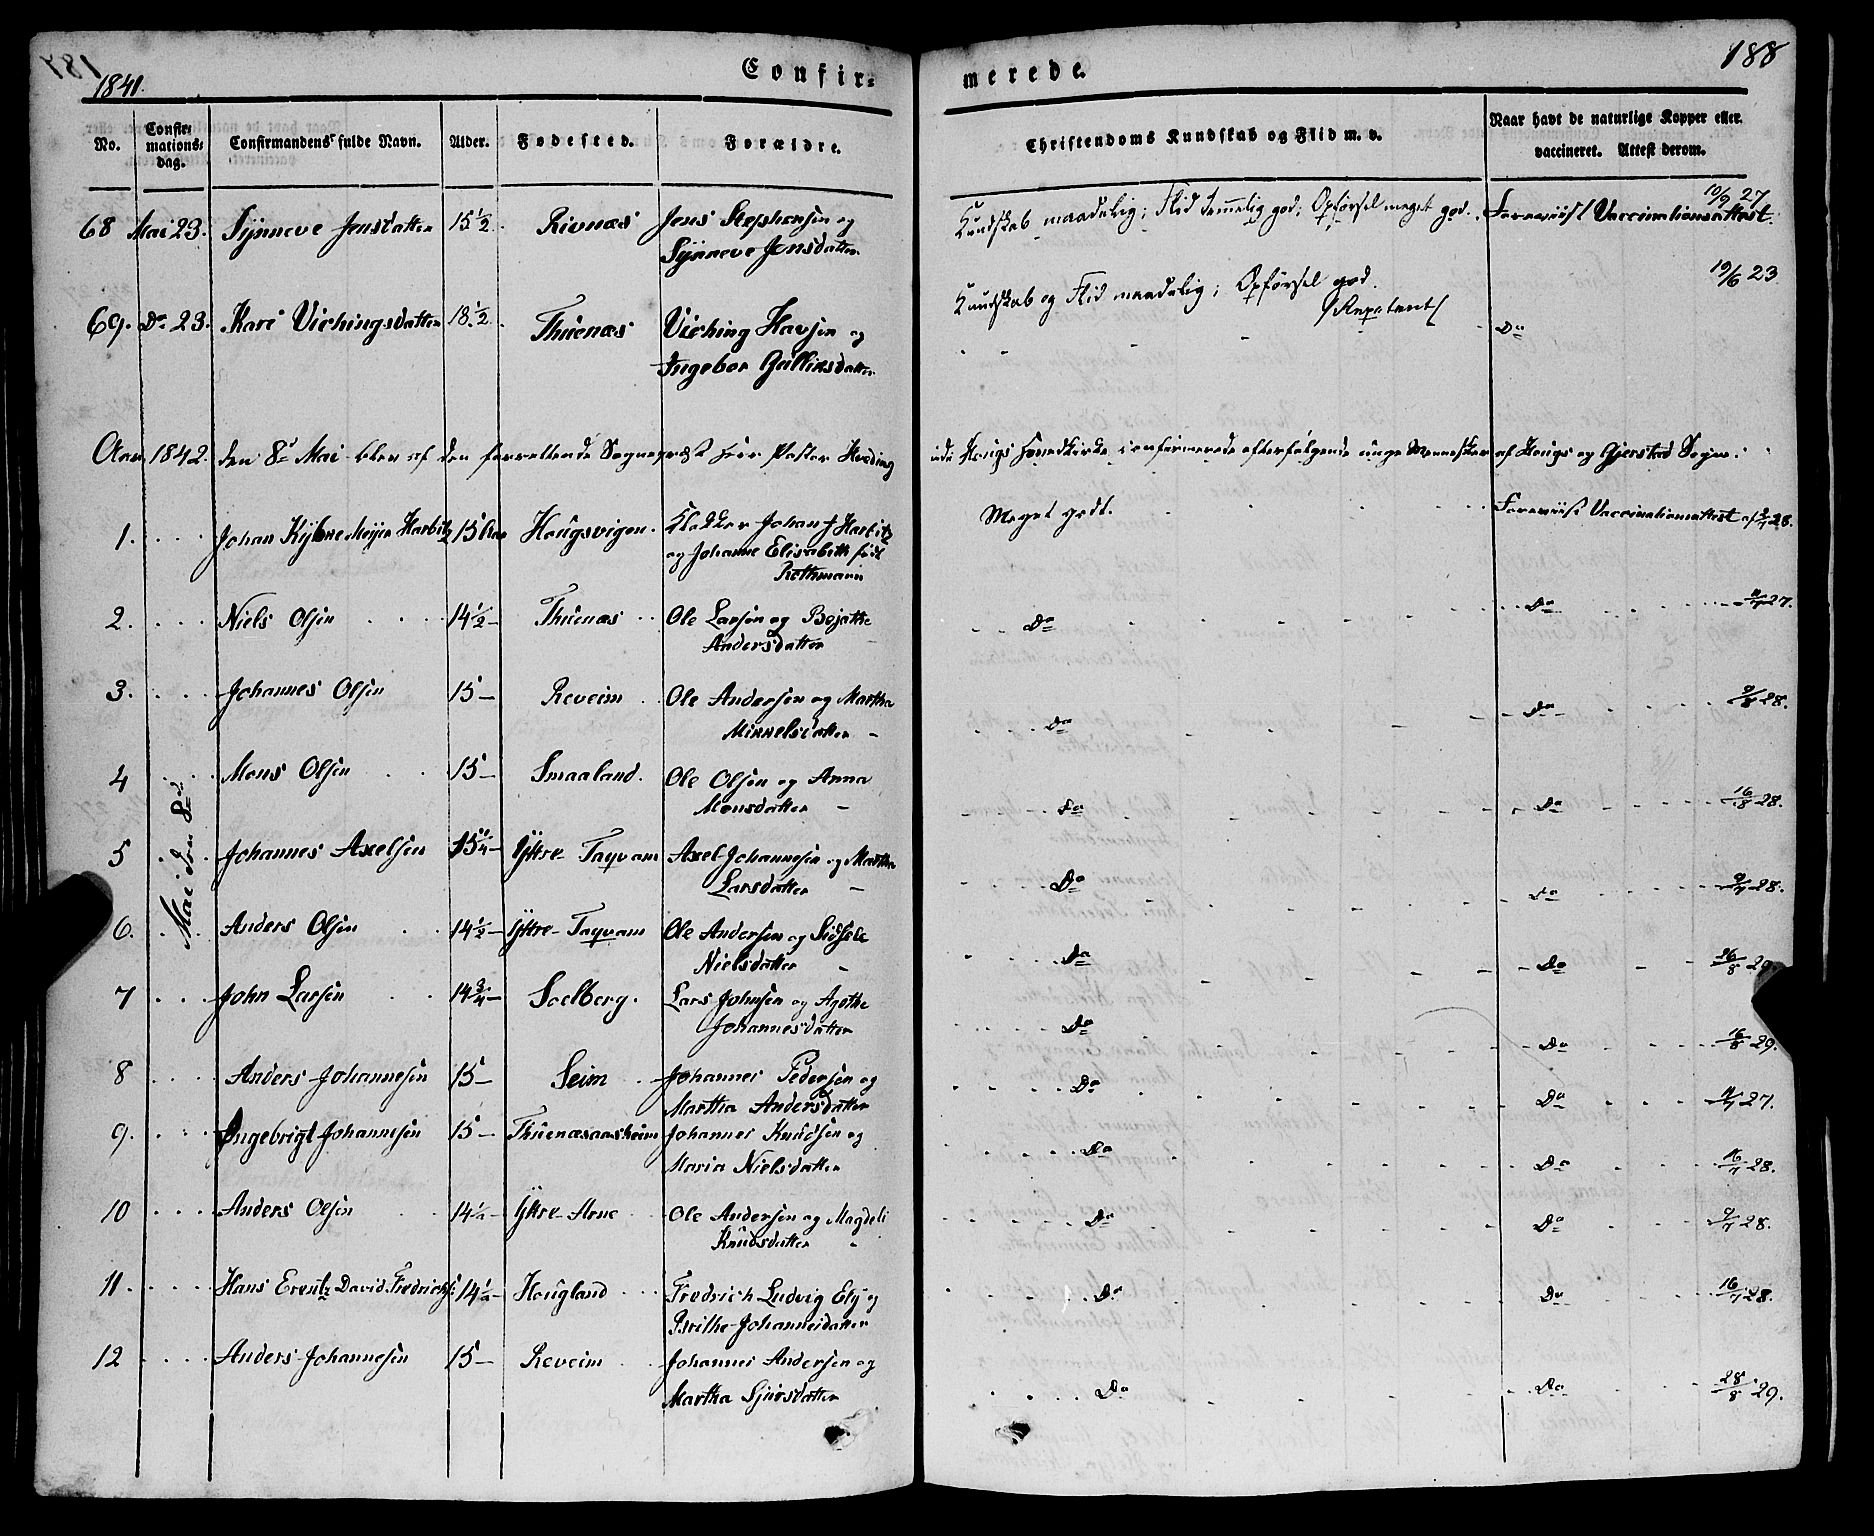 1841.
Confir-
merede.
188
No.
Confir-
mations-
dag.
Confirmandens fulde Navn.
Alder.
Fødested.
Forældre.
Christendoms Kundskab og Flid m. v.
Naar havt de naturlige Kopper eller
vaccineret. Attest derom.
68 Mai 23. Synneve Jensdatter 15 1/2. Rivnæs Jens Stephensen og
Synneve Jensdatter
Kundskab maadelig; Flid temmelig god; Opførsel meget god. Foreviist Vaccinationsattest. 10/9 27
69. Do 23. Kari Vichingsdatter 18 1/2. Thuenæs Viching Havsen og
Ingebor Gulliksdatter
Kundskab og Flid maadelig; Opførsel god.
/Repetent/ Do 19/6 23
Aar 1842. den 8de Mai blev af den forrettende Sognepræst Herr Pastor Hveding
Hougs Hovedkirke confirmerede efterfølgende unge Mennesker af Hougs og Gjerstad Sogne.
1. Johan Harbitz 15 Hougsvigen. Klokker Johan Harbitz
og Johanne Elisabeth født
Rothmann
Meget godt. Foreviist Vaccinationsattest 28.
2. Niels Olsen 14 1/2 Thuenæs Ole Larsen og
Andersdatter
Do Do 27.
3. Johannes Olsen 15 Reveim Ole Andersen og Martha
Mikkelsdatter
Do Do 9/8 28.
4 Mons Olsen 15 Smaaland. Ole Olsen og Anna
Monsdatter
Do Do 16/8 28.
Mai den 8de
5 Johannes Axelsen 15 Yttre-Taqvam Axel Johannesen og Martha
Larsdatter
Do Do 28.
6. Anders Olsen 14 1/2 Yttre-Taqvam Ole Andersen og Sidsele
Nielsdatter
Do Do 26/8 29.
7 John Larsen 14 3/4 Soelberg. Lars Johnsen og Agathe
Johannesdatter
Do Do 16/8 29.
8 Anders Johannesen 15 Seim Johannes Pedersen og
Martha Andersdatter
Do Do 27.
9. Ingebrigt Johannesen 15 Thuenæsaasheim Johannes Knudsen og
Maria Nielsdatter
Do Do 16/7 28.
10 Anders Olsen 14 1/2 Yttre-Arne Ole Andersen og Magdeli
Knudsdatter
Do Do 9/7 28.
11. Hans Erentz David Fredrichs. 14 1/2 Hougland Fredrich Ludvig og
Brithe Johannesdatter
Do Do 16/7 28.
12 Anders Johannesen 15 Reveim Johannes Andersen og
Martha Sjursdatter
Do Do 28/8 29.